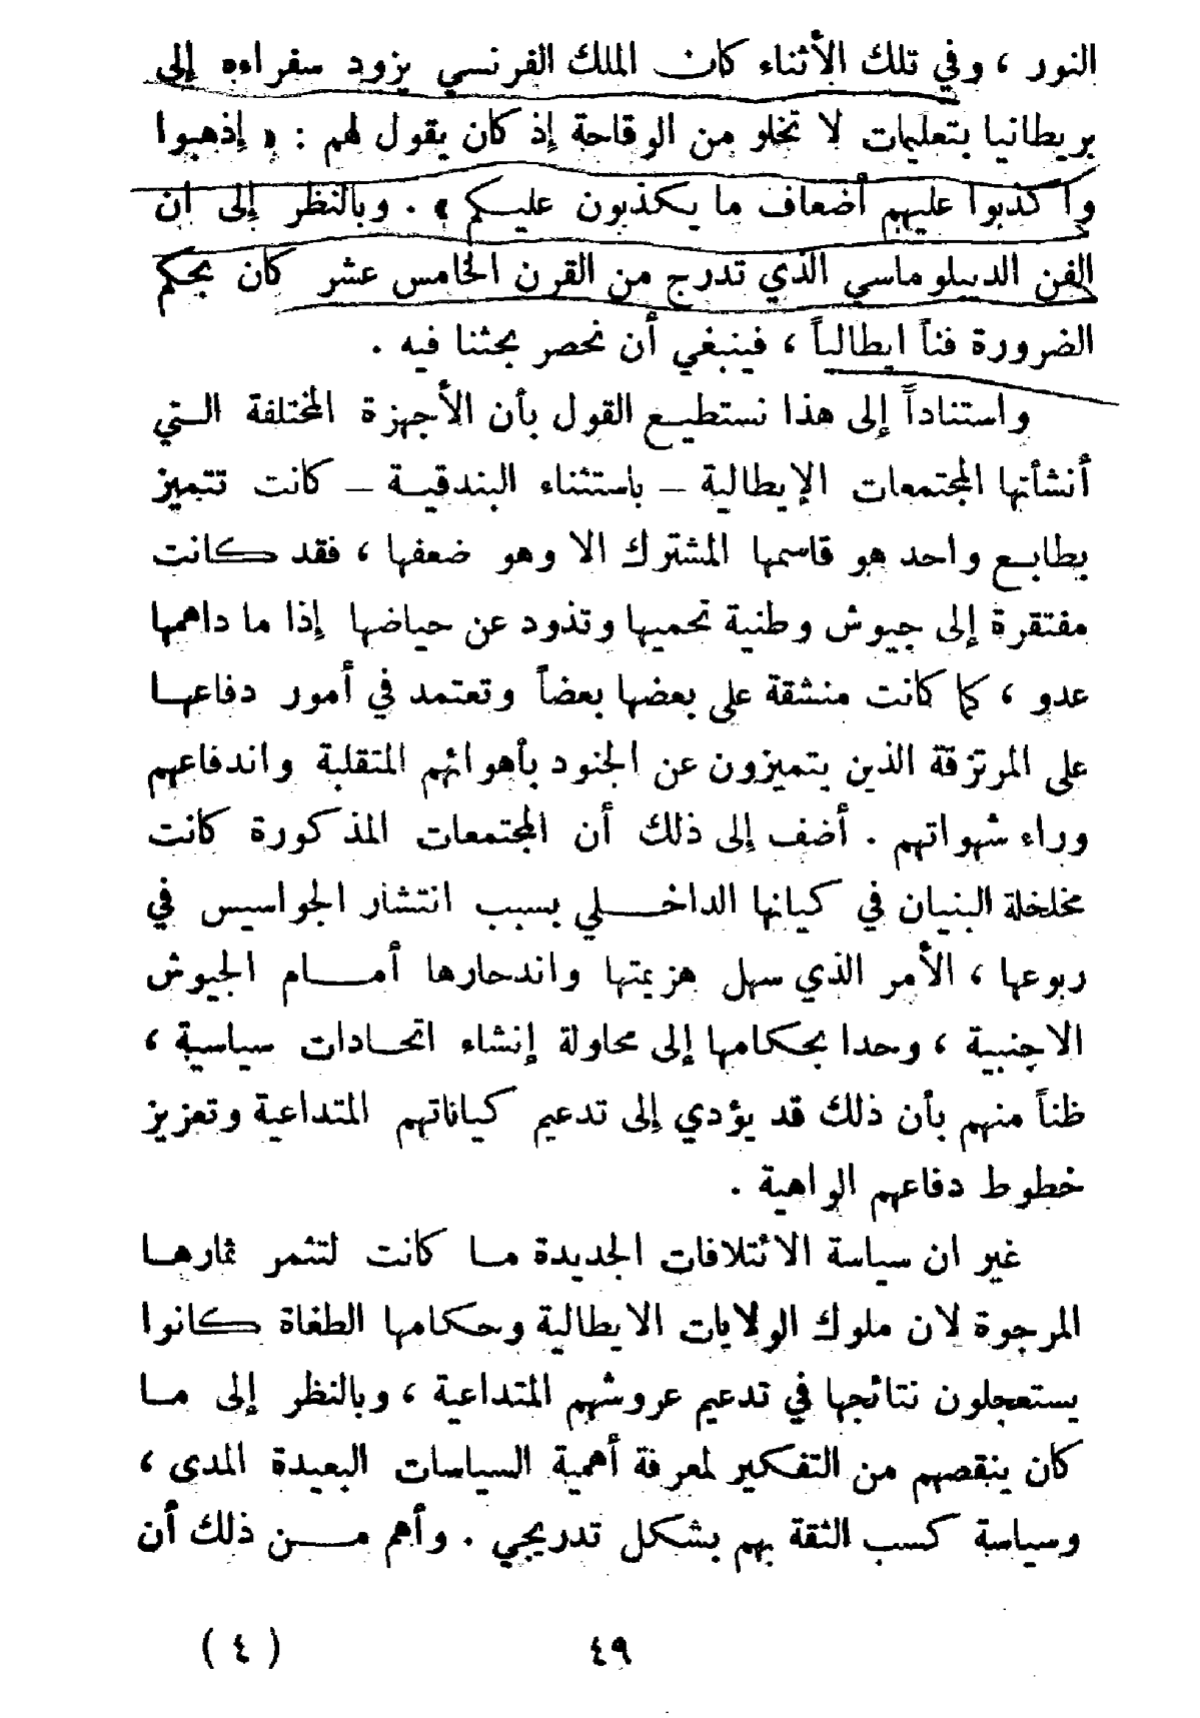 النور ، وفي تلك الأثناء كان الملك الفرنسي يزود سفراءه إلى
بريطانيا بتعليمات لا تخلو من الوقاحة إذ كان يقول لهم : « إذهبوا
واكذبوا عليهم أضعاف ما يكذبون عليكم » . وبالنظر إلى ان
الفن الديبلوماسي الذي تدرج من القرن الخامس عشر كان بحكم
الضرورة فناً ايطالياً ، فينبغي أن نحصر بحثنا فيه .
واستناداً إلى هذا نستطيع القول بأن الأجهزة المختلفة التي
أنشأتها المجتمعات الإيطالية – باستثناء البندقية – كانت تتميز
بطابع واحد هو قاسمها المشترك الا وهو ضعفها ، فقد كانت
مفتقرة إلى جيوش وطنية تحميها وتذود عن حياضها إذا ما داهمها
عدو ، كما كانت منشقة على بعضها بعضاً وتعتمد في أمور دفاعها
على المرتزقة الذين يتميزون عن الجنود بأهوائهم المتقلبة واندفاعهم
وراء شهواتهم . أضف إلى ذلك أن المجتمعات المذكورة كانت
مخلخلة البنيان في كيانها الداخلي بسبب انتشار الجواسيس في
ربوعها ، الأمر الذي سهل هزيمتها واندحارها أمام الجيوش
الاجنبية ، وحدا بحكامها إلى محاولة إنشاء اتحادات سياسية ،
ظناً منهم بأن ذلك قد يؤدي إلى تدعيم كياناتهم المتداعية وتعزيز
خطوط دفاعهم الواهية .
غير ان سياسة الائتلافات الجديدة ما كانت لتثمر ثمارها
المرجوة لان ملوك الولايات الايطالية وحكامها الطغاة كانوا
يستعجلون نتائجها في تدعيم عروشهم المتداعية ، وبالنظر إلى ما
كان ينقصهم من التفكير لمعرفة أهمية السياسات البعيدة المدى ،
وسياسة كسب الثقة بهم بشكل تدريجي . وأهم من ذلك أن
٤٩
( ٤ )